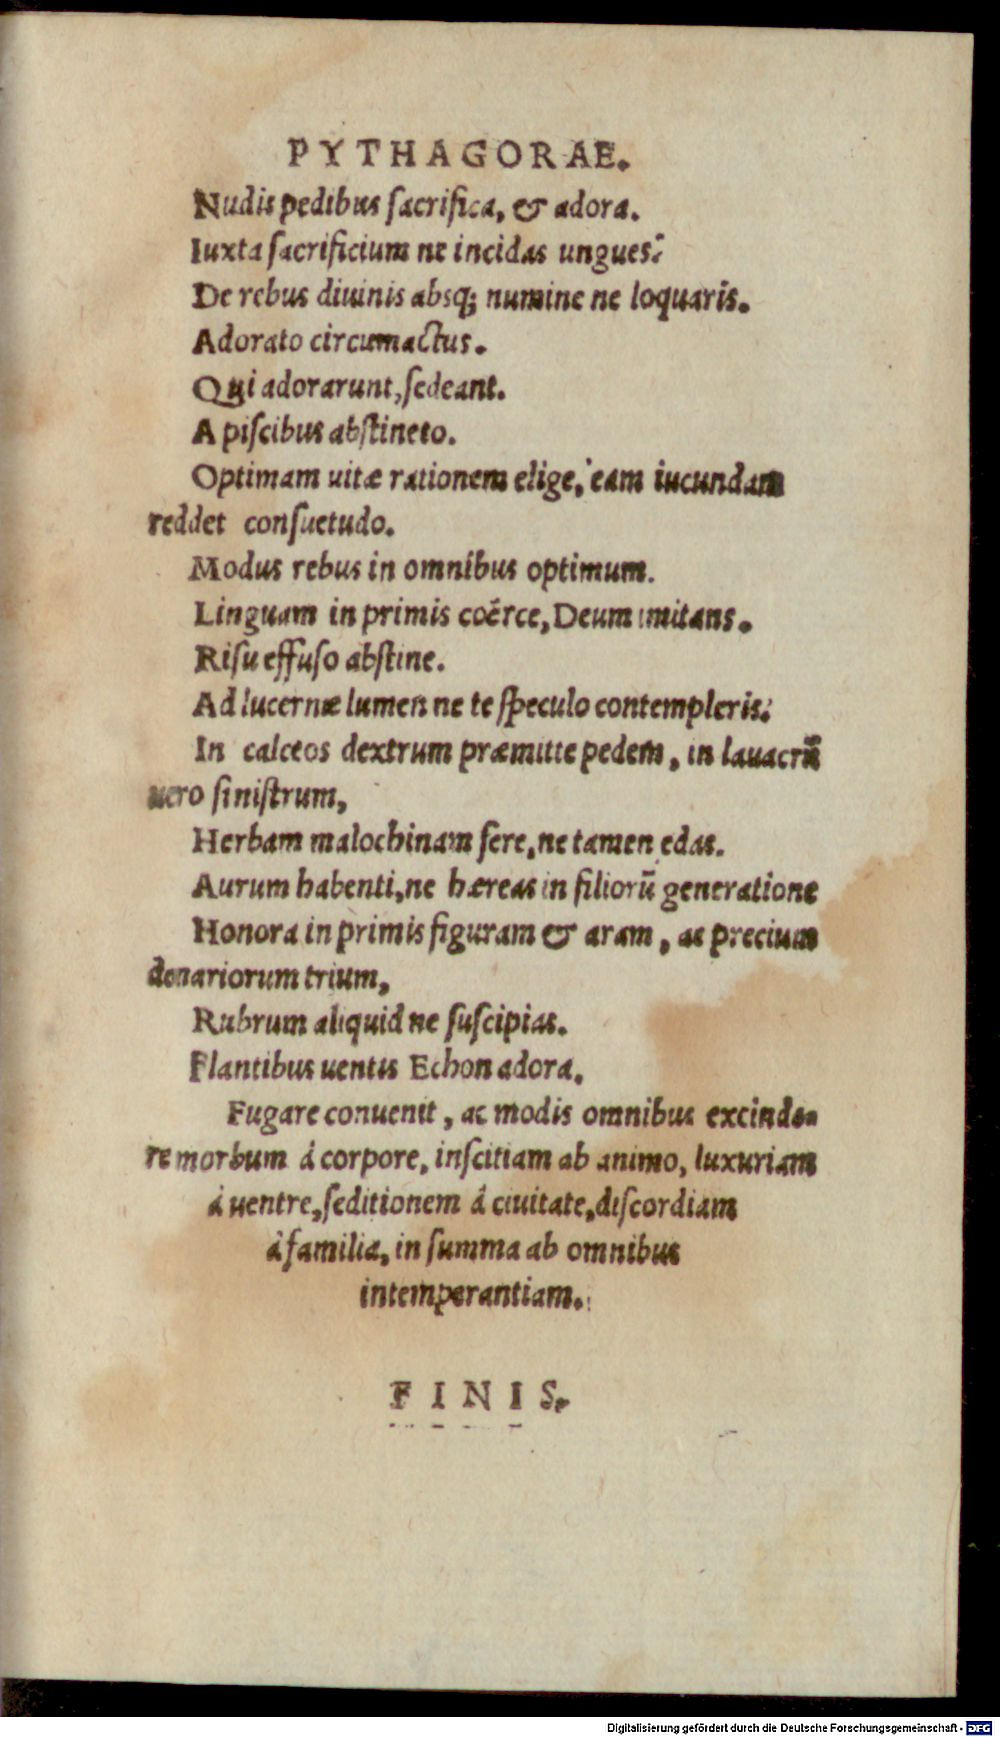 PYTHAGORAE.
Nudis pedibus ſacrifica, & adora.
Iuxta ſacrificium ne incidas ungues.
De rebus diuinis absq; numine ne loquaris.
Adorato circumactus.
Qui adorarunt, ſedeant.
A piſcibus abſtineto.
Optimam uitæ rationem elige, eam iucundam
reddet conſuetudo.
Modus rebus in omnibus optimum.
Linguam in primis coërce, Deum imitans.
Riſu effuſo abſtine.
Ad lucernæ lumen ne te ſpeculo contempleris.
In calceos dextrum præmitte pedem, in lauacrũ
uero ſiniſtrum,
Herbam malochinam ſere, ne tamen edas.
Aurum habenti, ne hæreas in filiorũ generatione
Honora in primis figuram & aram, ac precium
denariorum trium,
Rubrum aliquid ne ſuſcipias.
Flantibus uentis Echon adora.
Fugare conuenit, ac modis omnibus excinde-
re morbum á corpore, inſcitiam ab animo, luxuriam
á uentre, ſeditionem á ciuitate, diſcordiam
á familia, in ſumma ab omnibus
intemperantiam.
FINIS.
Digitalisierung gefördert durch die Deutsche Forschungsgemeinschaft - DFG